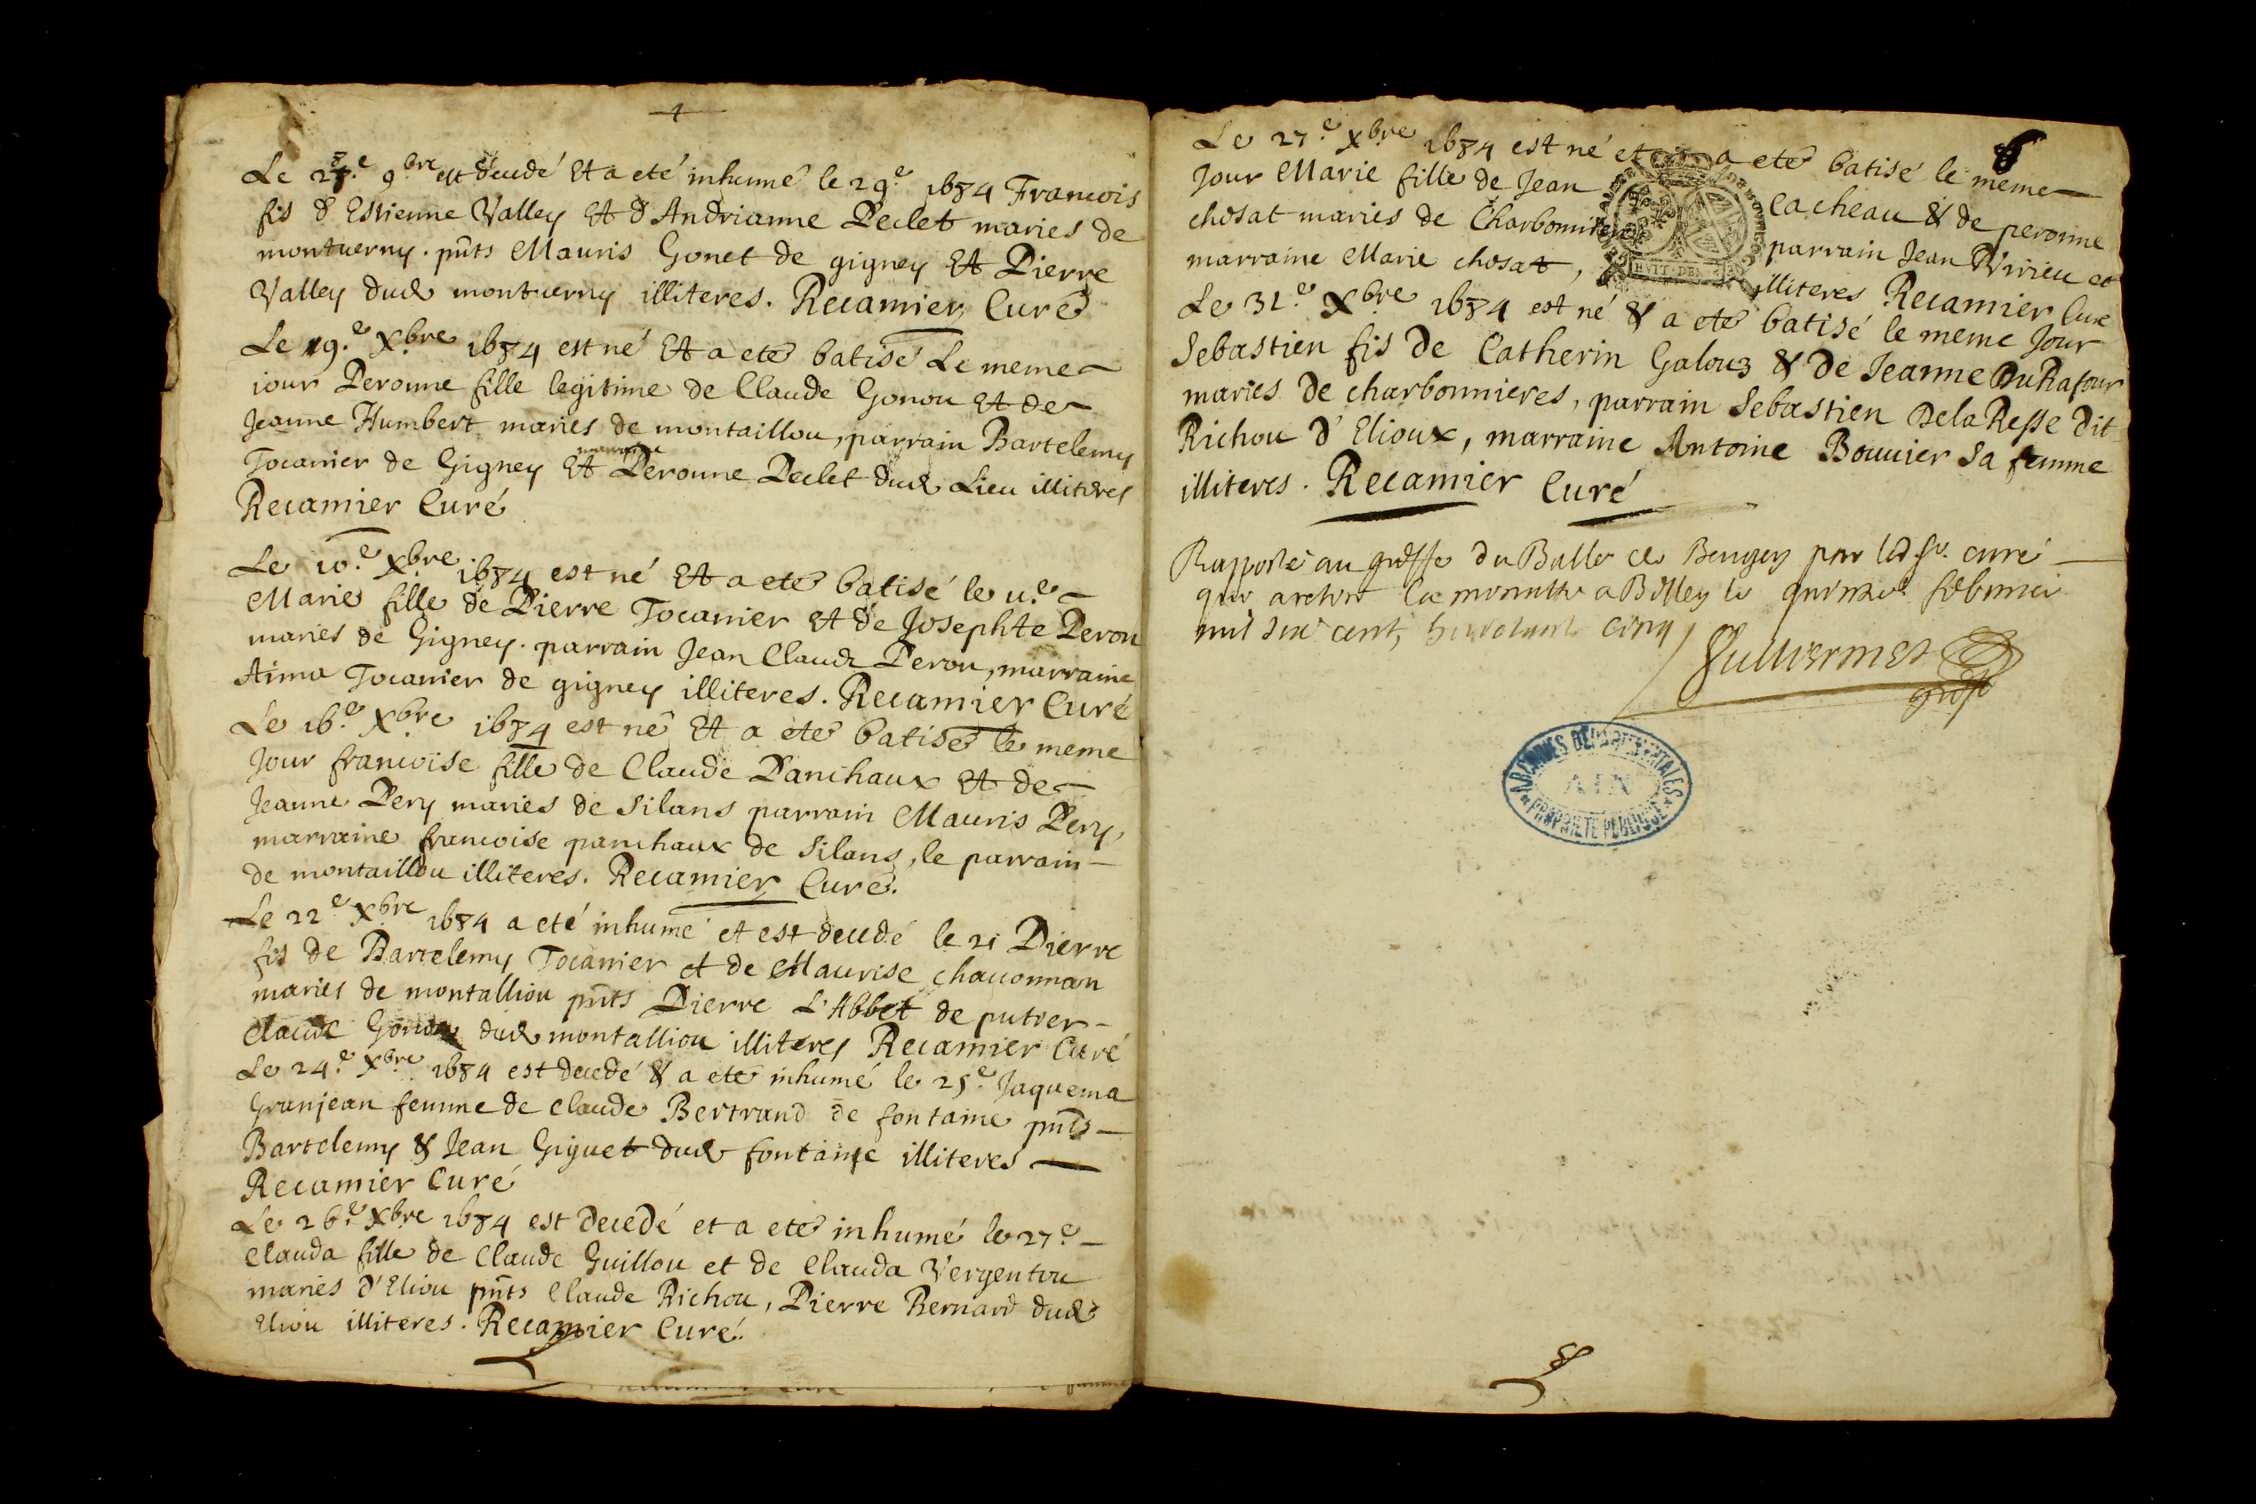 Le 28.e 9.bre est decedé Et a eté inhumé le 29.e 1684 Francois
fis d'Estienne Valley Et d'Andrianne Peclet mariés de
montverny. pnts Mauris Gonet de gigney Et Pierre
Valley dud montverny illiteres. Recamier Curé
Le 9.e Xbre 1684 est né Et a eté batisé Le meme
iour Peronne fille legitime de Claude Gonou Et de
Jeanne Humbert mariés de montaillou, parrain Bartelemy
marraine
Tocanier de Gigney Et Peronne Peclet dud Lieu illiteres
Recamier Curé
Le 10.e Xbre 1684 est né Et a eté batisé le 11.e
Marie fille de Pierre Tocanier Et de Josephte Peron
mariés de Gigney. parrain Jean Claude Peron, marraine
Aima Tocanier de gigney illiteres. Recamier Curé
Le 16.e Xbre 1684 est né Et a eté batisé le meme
Jour francoise fille de Claude Panchaux Et de
Jeanne Pery mariés de Silans parrain Mauris Pery,
marraine francoise panchaux de Silans, le parrain
de montaillou illiteres. Recamier Curé.
Le 22.e Xbre 1684 a eté inhumé et est decedé le 21 Pierre
fis de Bartelemy Tocanier et de Maurise chavonnan
mariés de montalliou pnts Pierre L'Abbet de putier
Claude Gonou dud montalliou illiteres Recamier Curé
Le 24.e Xbre 1684 est decedé & a eté inhumé le 25.e Jaquema
Granjean femme de Claude Bertrand de fontaine pnts
Bartelemy & Jean Giguet dud fontaine illiteres
Recamier Curé
Le 26.e Xbre 1684 est decedé et a eté inhumé le 27.e
Clauda fille de Claude Guillou et de Clauda Vergentou
mariés d'Eliou pnts Claude Richou, Pierre Bernard dud
Eliou illiteres. Recamier Curé.
6
Le 27.e Xbre 1684 est né et a eté batisé le meme
Jour Marie fille de Jean Cacheau & de peronne
chosat mariés de Charbonniere parrain Jean Virieu et
marraine Marie chosat, illiteres Recamier Curé
HVIT DEN
Le 31.e Xbre 1684 est né & a eté batisé le meme Jour
Sebastien fis de Catherin Galouz & de Jeanne DuRafour
mariés de charbonnieres, parrain Sebastien DelaResse dit
Richou d'Elioux, marraine Antoine Bouvier Sa femme
illiteres. Recamier Curé
Rapporté au greffe du Ballé de Beugey par led sr. curé
qui a retiré la minutte a Belley le quinze febvrier
mil six cent, huictante cinq
Greff
ARCHIVES DEPARTEMENTALES
AIN
PROPRIETE PUBLIQUE